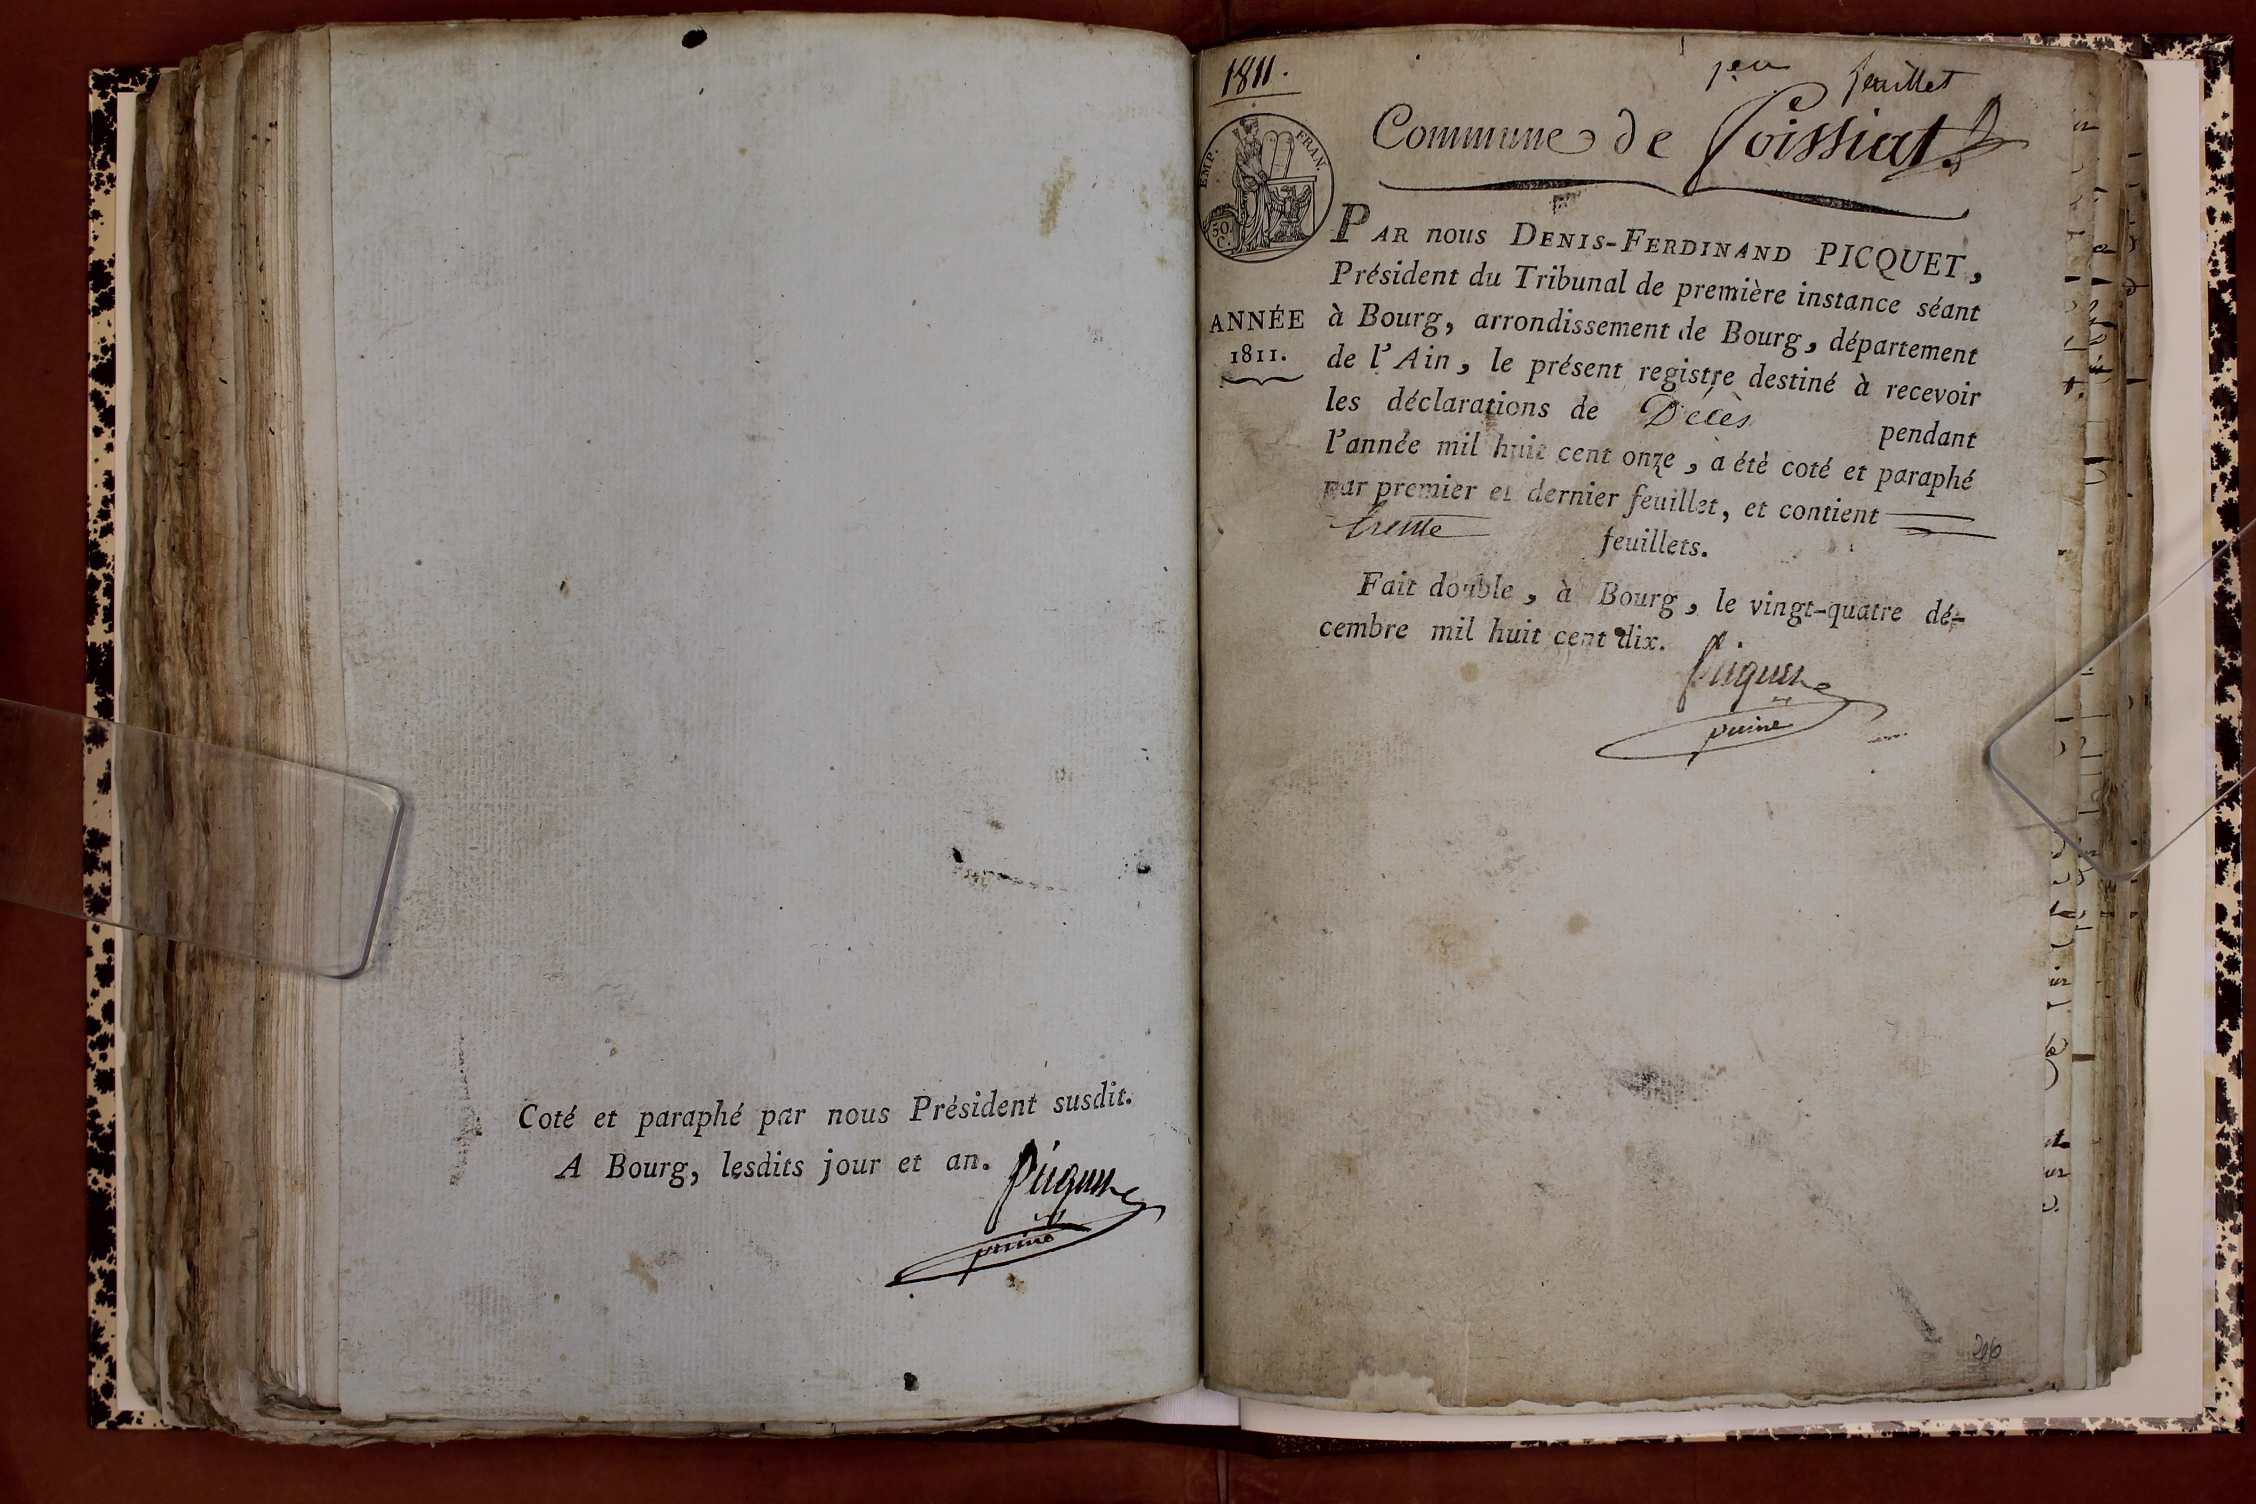 Coté et paraphé par nous Président susdit.
A Bourg, lesdits jour et an.
1811.
1er feuillet
Commune de Foissiat.
EMP. FRAN.
50. C.
PAR nous DENIS-FERDINAND PICQUET,
Président du Tribunal de première instance séant
à Bourg, arrondissement de Bourg, département
de l'Ain, le présent registre destiné à recevoir
les déclarations de Décès pendant
l'année mil huit cent onze, a été coté et paraphé
par premier et dernier feuillet, et contient
trente feuillets.
ANNÉE
1811.
Fait double, à Bourg, le vingt-quatre dé-
cembre mil huit cent dix.